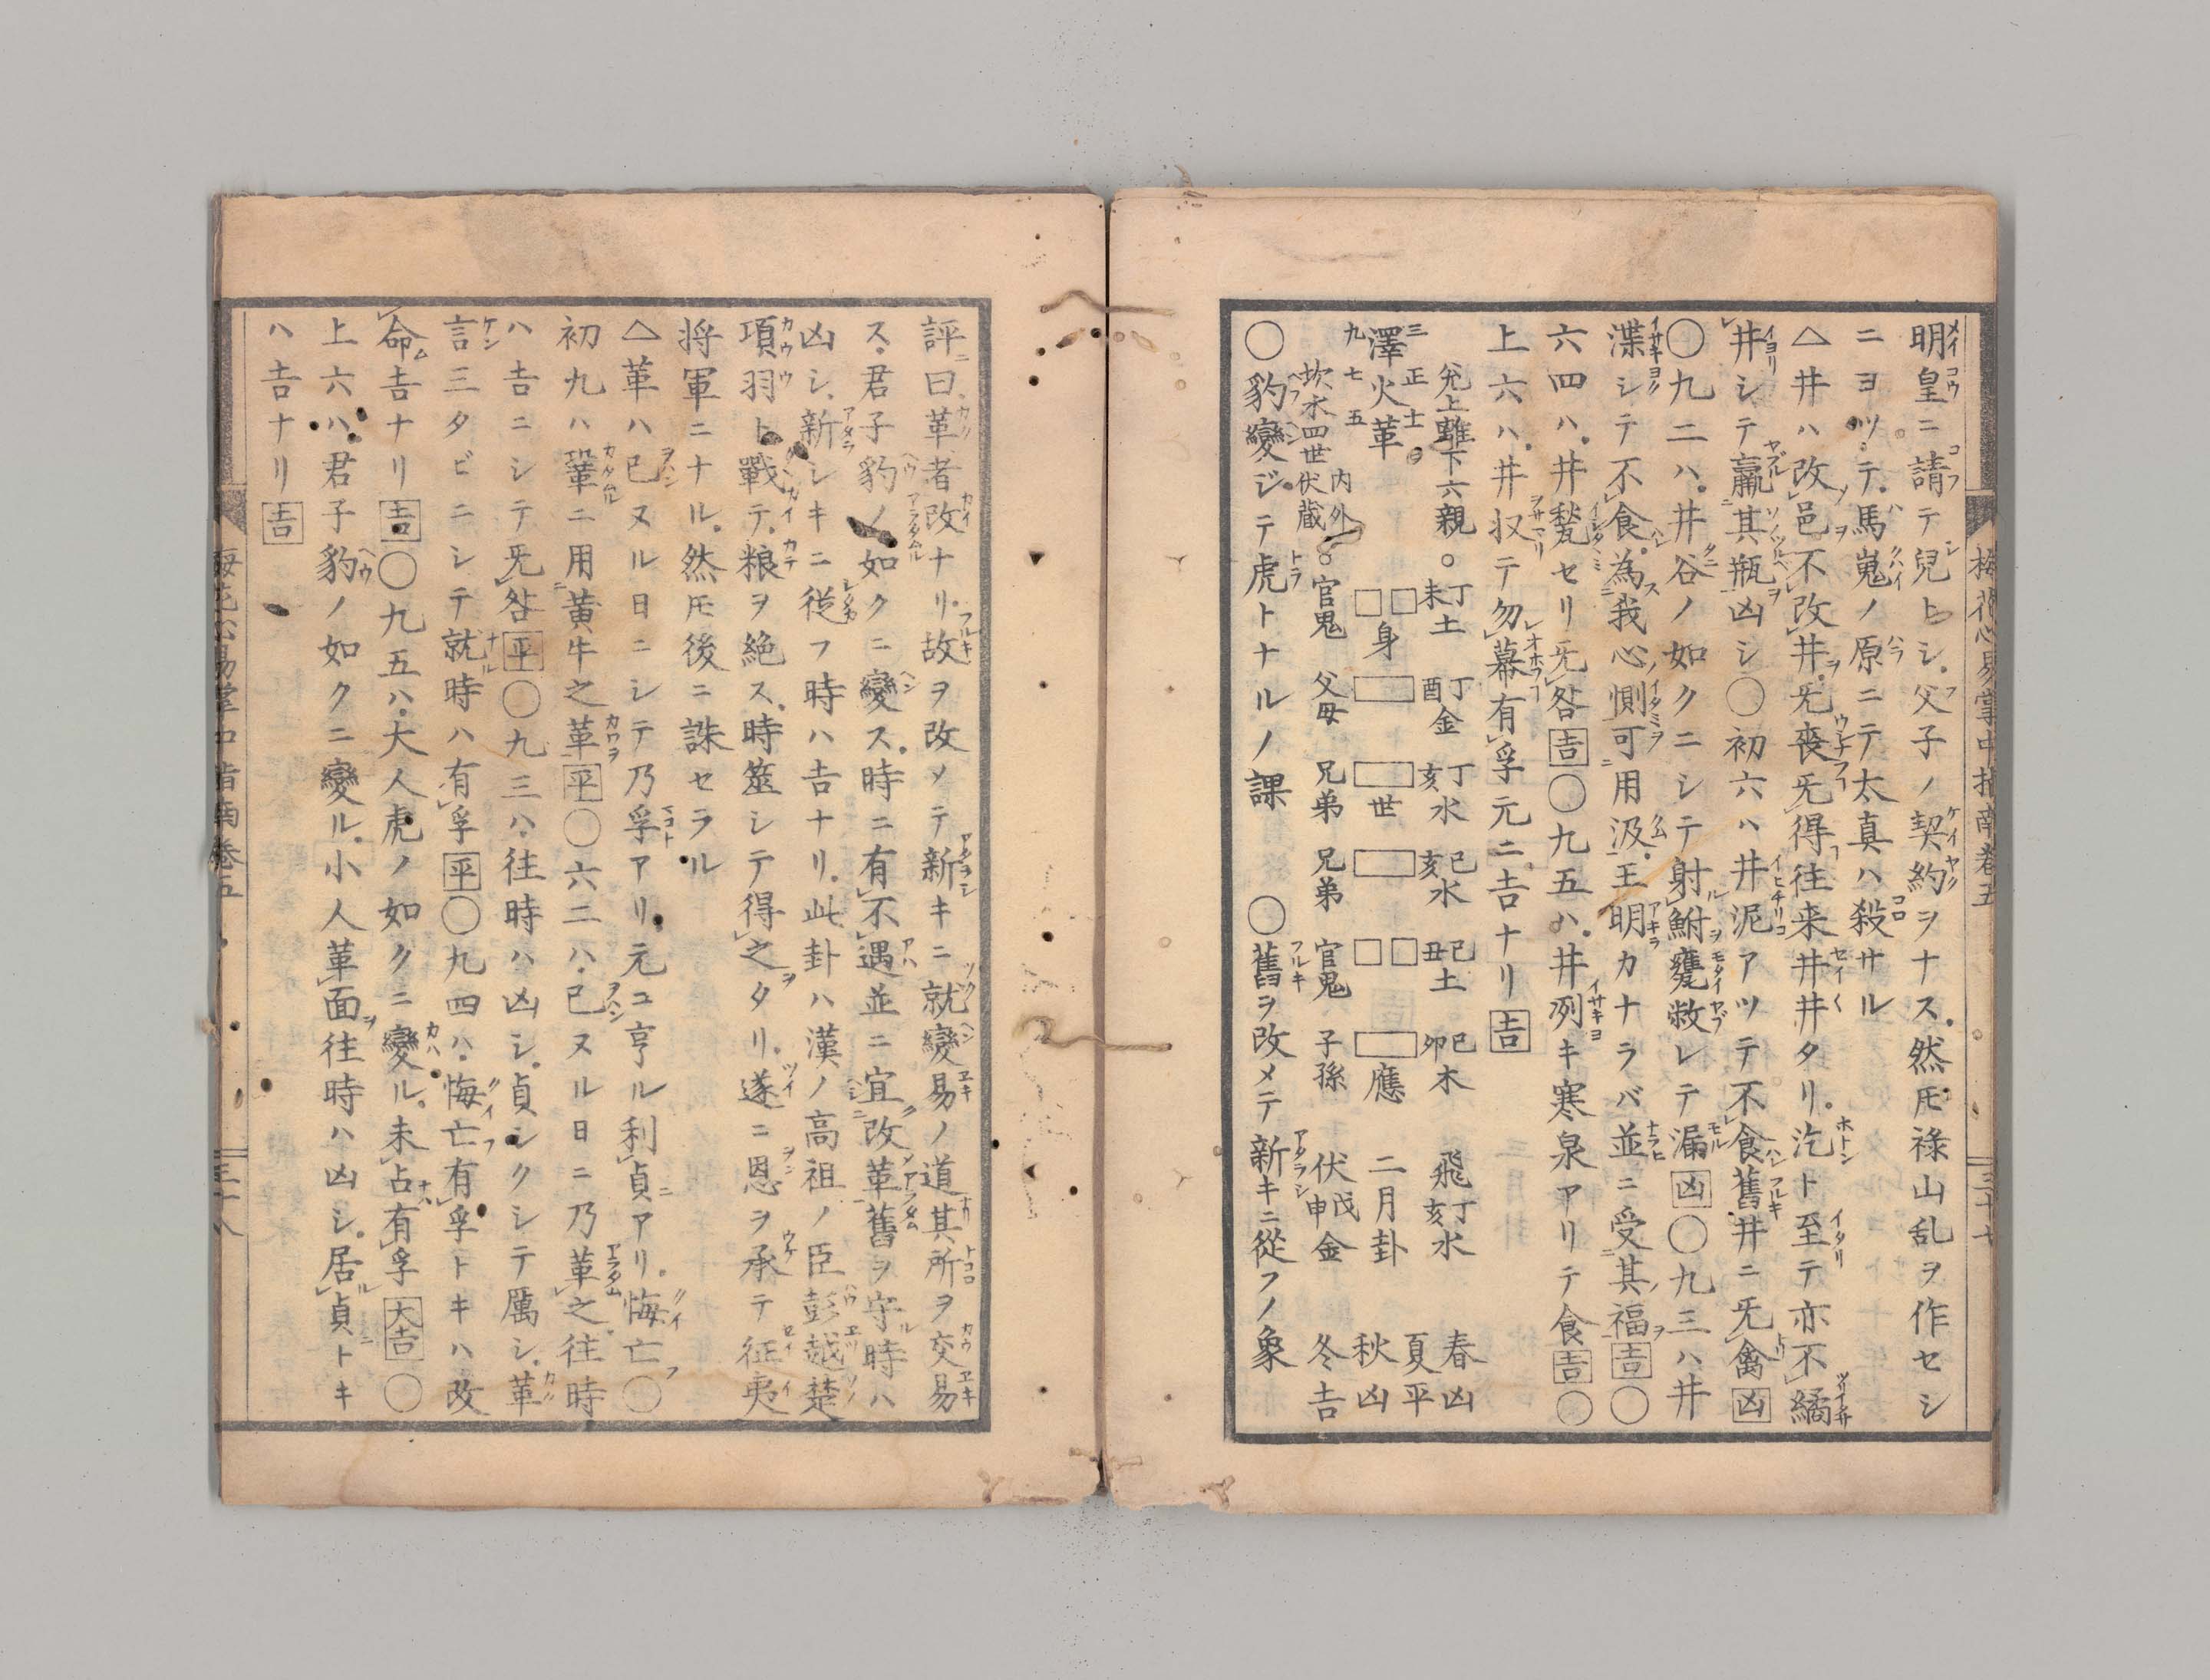 梅花心易掌中指南巻五
三十七
明皇ニ請テ兒トシ父子ノ契約ヲナス然𪜈祿山乱ヲ作セシ
ニヨツテ馬嵬ノ原ニテ太真ハ殺サル
△井ハ改邑不改井无喪无得往来井井タリ汔ト至テ亦不繘
井シテ羸其瓶凶シ〇初六ハ井泥アツテ不食舊井ニ无禽凶
〇九二ハ井谷ノ如クニシテ射鮒甕敝レテ漏凶〇九三ハ井
渫シテ不食為我心惻可用汲王明カナラバ並ニ受其福吉〇
六四ハ井甃セリ无咎吉〇九五ハ井冽キ寒泉アリテ食吉〇
上六ハ井収テ勿幕有孚元ニ吉ナリ吉
兌上離下六親。丁未土 丁酉金 丁亥水 己亥水 己丑土 己卯木 飛丁亥水 春凶
三正士 夏平
澤火革 身 世 應 二月卦 秋凶
九七五
坎水四世伏蔵内外。官鬼 父母 兄弟 兄弟 官鬼 子孫 伏戊申金 冬吉
〇豹變ジテ虎トナルノ課 〇舊ヲ改メテ新キニ從フノ象
評曰革者改ナリ故ヲ改メテ新キニ就變易ノ道其所ヲ交易
ス君子豹ノ如クニ變ス時ニ有不遇並ニ宜改革舊ヲ守時ハ
凶シ新シキニ従フ時ハ吉ナリ此卦ハ漢ノ高祖ノ臣彭越楚
項羽ト戰テ粮ヲ絶ス時筮シテ得之タリ遂ニ恩ヲ承テ征夷
将軍ニナル然𪜈後ニ誅セラル
△革ハ已ヌル日ニシテ乃孚アリ元ユ亨ル利貞アリ悔亡〇
初九ハ鞏ニ用黄牛之革平〇六二ハ已ヌル日ニ乃革之往時
ハ吉ニシテ无咎平〇九三ハ往時ハ凶シ貞シクシテ厲シ革
言三タビニシテ就時ハ有孚平〇九四ハ悔亡有孚トキハ改
命吉ナリ吉〇九五ハ大人虎ノ如クニ變ル未占有孚大吉〇
上六ハ君子豹ノ如クニ變ル小人革面往時ハ凶シ居貞トキ
ハ吉ナリ吉
梅花心易掌中指南巻五
三十八